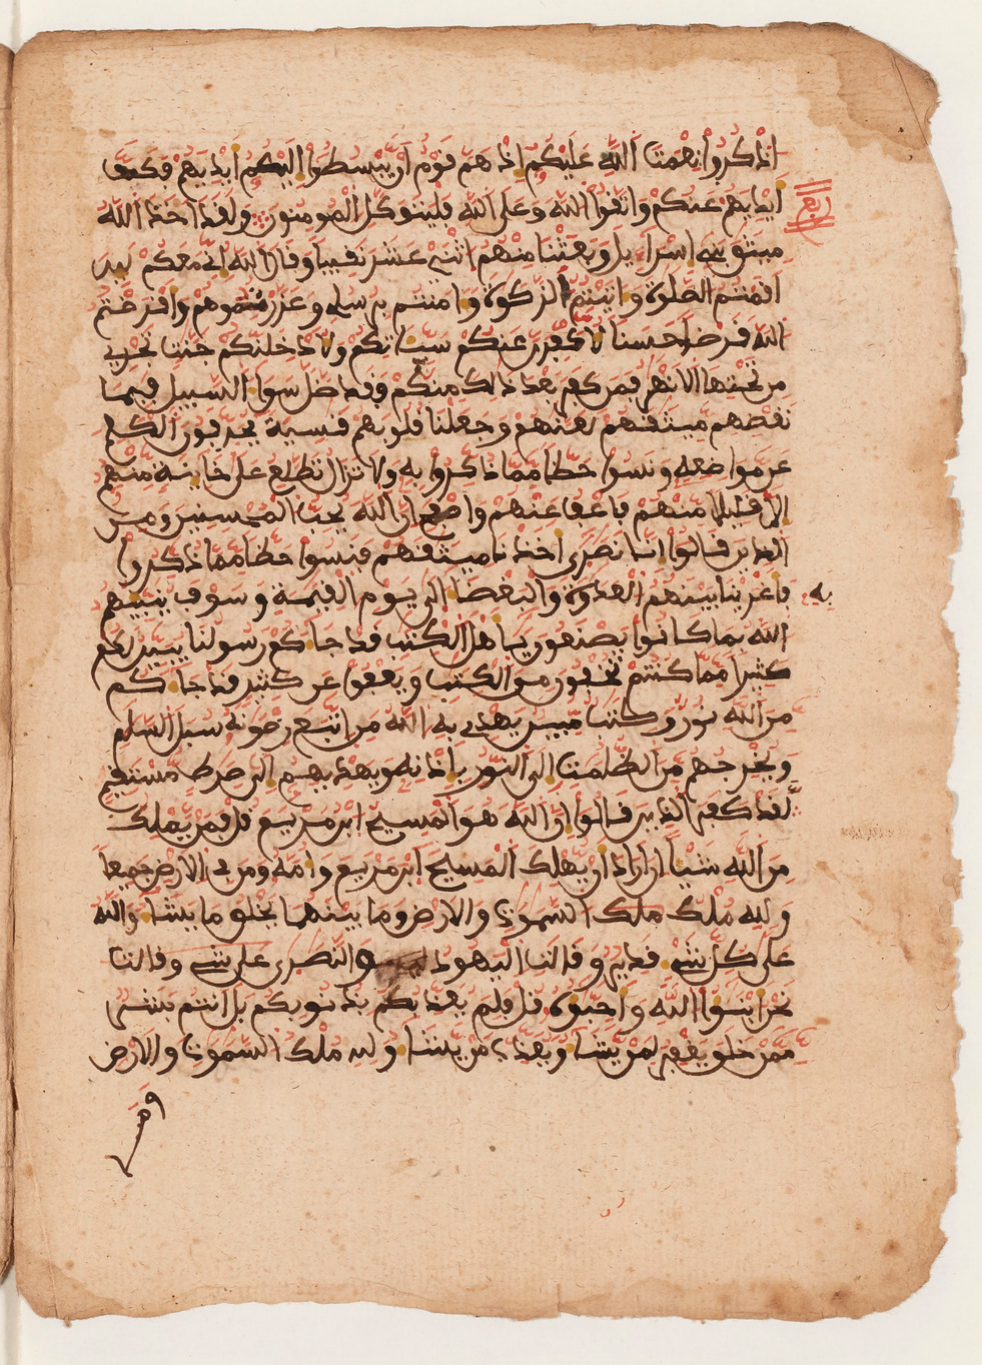 اذكروا نعمت الله عليكم اذ هم قوم ان يبسطوا اليكم ايديهم فكف
ربع
ايديهم عنكم واتقوا الله وعلى الله فليتوكل المومنون ولقد اخذ الله
ميثق بني اسراءيل وبعثنا منهم اثني عشر نقيبا وقال الله اني معكم لين
اقمتم الصلوة واتيتم الزكوة وءامنتم برسلي وعزرتموهم واقرضتم
الله قرضا حسنا لاكفرن عنكم سيئاتكم ولادخلنكم جنت تجري
من تحتها الانهر فمن كفر بعد ذلك منكم فقد ضل سواء السبيل فبما
نقضهم ميثقهم لعنهم وجعلنا قلوبهم قسية يحرفون الكلم
عن مواضعه ونسوا حظا مما ذكروا به ولا تزال تطلع على خاينة منهم
الا قليلا منهم فاعف عنهم واصفح ان الله يحب المحسنين ومن
الذين قالوا انا نصرى اخذنا ميثقهم فنسوا حظا مما ذكروا
به
فاغرينا بينهم العدوة والبغضاء الى يوم القيمة وسوف ينبيهم
الله بما كانوا يصنعون ياهل الكتب قد جاءكم رسولنا يبين لكم
كثيرا مما كنتم تخفون من الكتب ويعفوا عن كثير قد جاءكم
من الله نور وكتب مبين يهدي به الله من اتبع رضونه سبل السلم
ويخرجهم من الظلمت الى النور باذنه ويهديهم الى صرط مستقيم
لقد كفر الذين قالوا ان الله هو المسيح ابن مريم قل فمن يملك
من الله شيا ان اراد ان يهلك المسيح ابن مريم وامه ومن في الارض جميعا
ولله ملك ملك السموت والارض وما بينهما يخلق ما يشاء والله
على كل شيء قدير وقالت اليهود والنصرى على شيء وقالت
نحن ابنوا الله واحبوه قل فلم يعذبكم بذنوبكم بل انتم بشر
ممن خلق يغفر لمن يشاء ويعذب من يشاء ولله ملك السموت والارض
وما